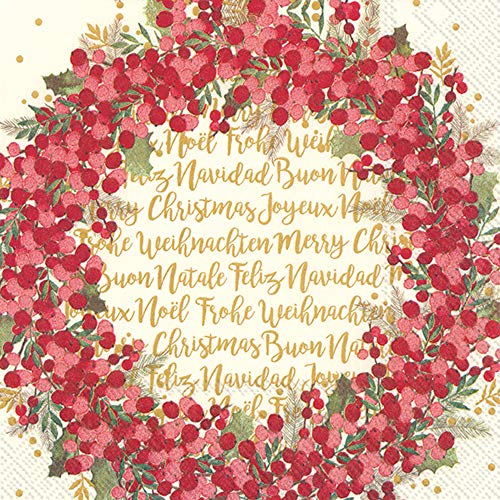 Merry
Noël Frohe Weih
Feliz Navidad Buon
Merry Christmas Joyeux Noël
Frohe Weihnachten Merry Chris
Buon Natale Feliz Navidad
Joyeux Noël Frohe Weihnachten
Christmas Buon Nata
Feliz Navidad Joyeux
Noël Frohe